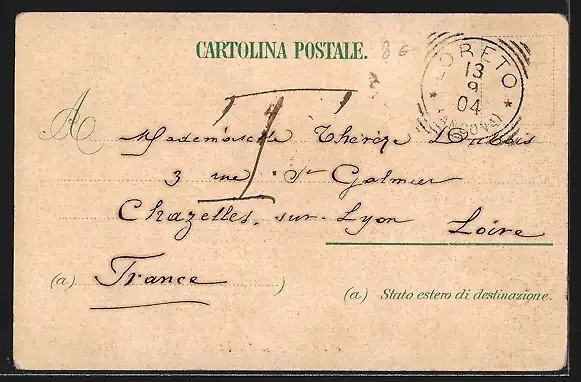 CARTOLINA POSTALE.
LORETO
13
9
04
A
Mademoiselle Thérèze Dubois
3 rue St Galmier
Chazelles. sur. Lyon Loire
(a) France )
(a) Stato estero di destinazione.